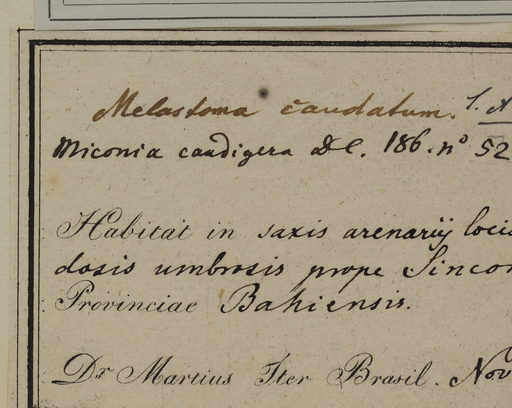 Melastoma caudatum. S. A
Miconia caudigera DC. 186. nº 52
Habitat in saxis arenariij locis
dosis umbrosis prope Sincor
Provinciae Bahiensis.
Dr Martius Iter Brasil. Nov